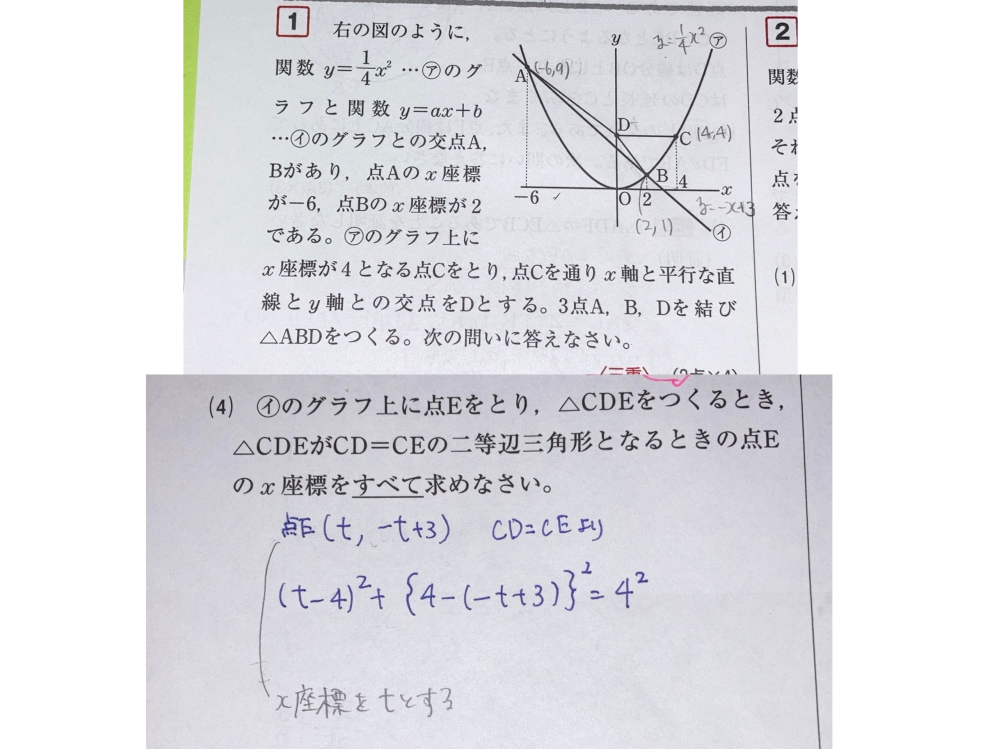 1 右の図のように,
関数 y=1/4x² …㋐のグ
ラフと関数 y=ax+b
…㋑のグラフとの交点A,
Bがあり, 点Aの x 座標
が−6, 点Bの x 座標が2
である。㋐のグラフ上に
x 座標が4となる点Cをとり, 点Cを通り x 軸と平行な直
線と y 軸との交点をDとする。3点A, B, Dを結び
△ABDをつくる。次の問いに答えなさい。
y
y=1/4x² ㋐
A (-6,9)
D
C (4,4)
B
−6 O 2 4 x
y=-x+3
(2,1)
㋑
2
関数
2点
それ
点を
答え
(1)
(4) ㋑のグラフ上に点Eをとり, △CDEをつくるとき,
△CDEがCD=CEの二等辺三角形となるときの点E
の x 座標をすべて求めなさい。
点E(t, -t+3) CD=CEより
(t-4)²+{4-(-t+3)}²=4²
x座標をtとする